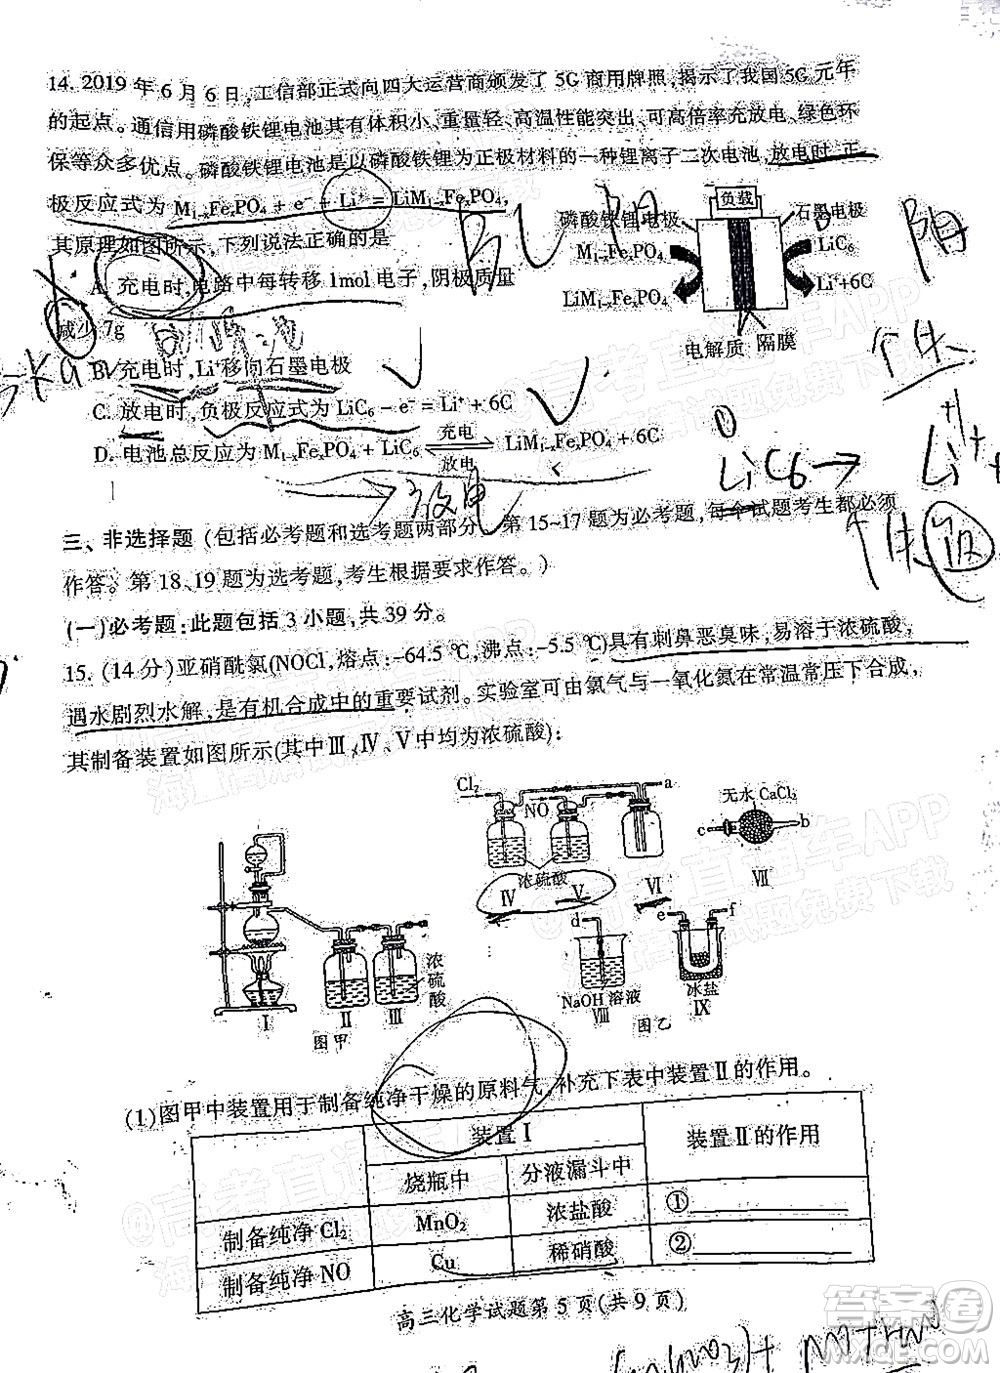 14. 2019 年 6 月 6 日,工信部正式向四大运营商颁发了 5G 商用牌照,揭示了我国 5G 元年
的起点。通信用磷酸铁锂电池具有体积小、重量轻、高温性能突出、可高倍率充放电、绿色环
保等众多优点。磷酸铁锂电池是以磷酸铁锂为正极材料的一种锂离子二次电池,放电时,正
极反应式为 M₁₋ₓFeₓPO₄ + e⁻ + Li⁺ = LiM₁₋ₓFeₓPO₄,
其原理如图所示,下列说法正确的是
A. 充电时,电路中每转移 1mol 电子,阴极质量
减少 7g
B. 充电时, Li⁺移向石墨电极
C. 放电时,负极反应式为 LiC₆ − e⁻ = Li⁺ + 6C
D. 电池总反应为 M₁₋ₓFeₓPO₄ + LiC₆ ⇌ LiM₁₋ₓFeₓPO₄ + 6C
充电
放电
负载
磷酸铁锂电极
石墨电极
M₁₋ₓFeₓPO₄
LiC₆
LiM₁₋ₓFeₓPO₄
Li⁺+6C
电解质 隔膜
阳
放电
LiC6 → Li⁺ +
三、非选择题 (包括必考题和选考题两部分。第 15~17 题为必考题,每个试题考生都必须
作答。第 18、19 题为选考题,考生根据要求作答。)
(一)必考题:此题包括 3 小题,共 39 分。
15. (14 分)亚硝酰氯(NOCl,熔点:−64.5 ℃,沸点:−5.5 ℃)具有刺鼻恶臭味,易溶于浓硫酸,
遇水剧烈水解,是有机合成中的重要试剂。实验室可由氯气与一氧化氮在常温常压下合成,
其制备装置如图所示(其中Ⅲ、Ⅳ、Ⅴ中均为浓硫酸):
Cl₂
NO
a
浓硫酸
Ⅳ Ⅴ Ⅵ
无水 CaCl₂
c b
Ⅶ
d
NaOH 溶液
Ⅷ
e f
冰盐
Ⅸ
图乙
浓硫酸
Ⅰ Ⅱ Ⅲ
图甲
(1)图甲中装置用于制备纯净干燥的原料气,补充下表中装置Ⅱ的作用。
装置Ⅰ 装置Ⅱ的作用
烧瓶中 分液漏斗中
制备纯净 Cl₂ MnO₂ 浓盐酸 ①________
制备纯净 NO Cu 稀硝酸 ②________
高三化学试题第 5 页(共 9 页)
@高考直通车APP
海量高清试题免费下载
答案圈
MXQE.COM